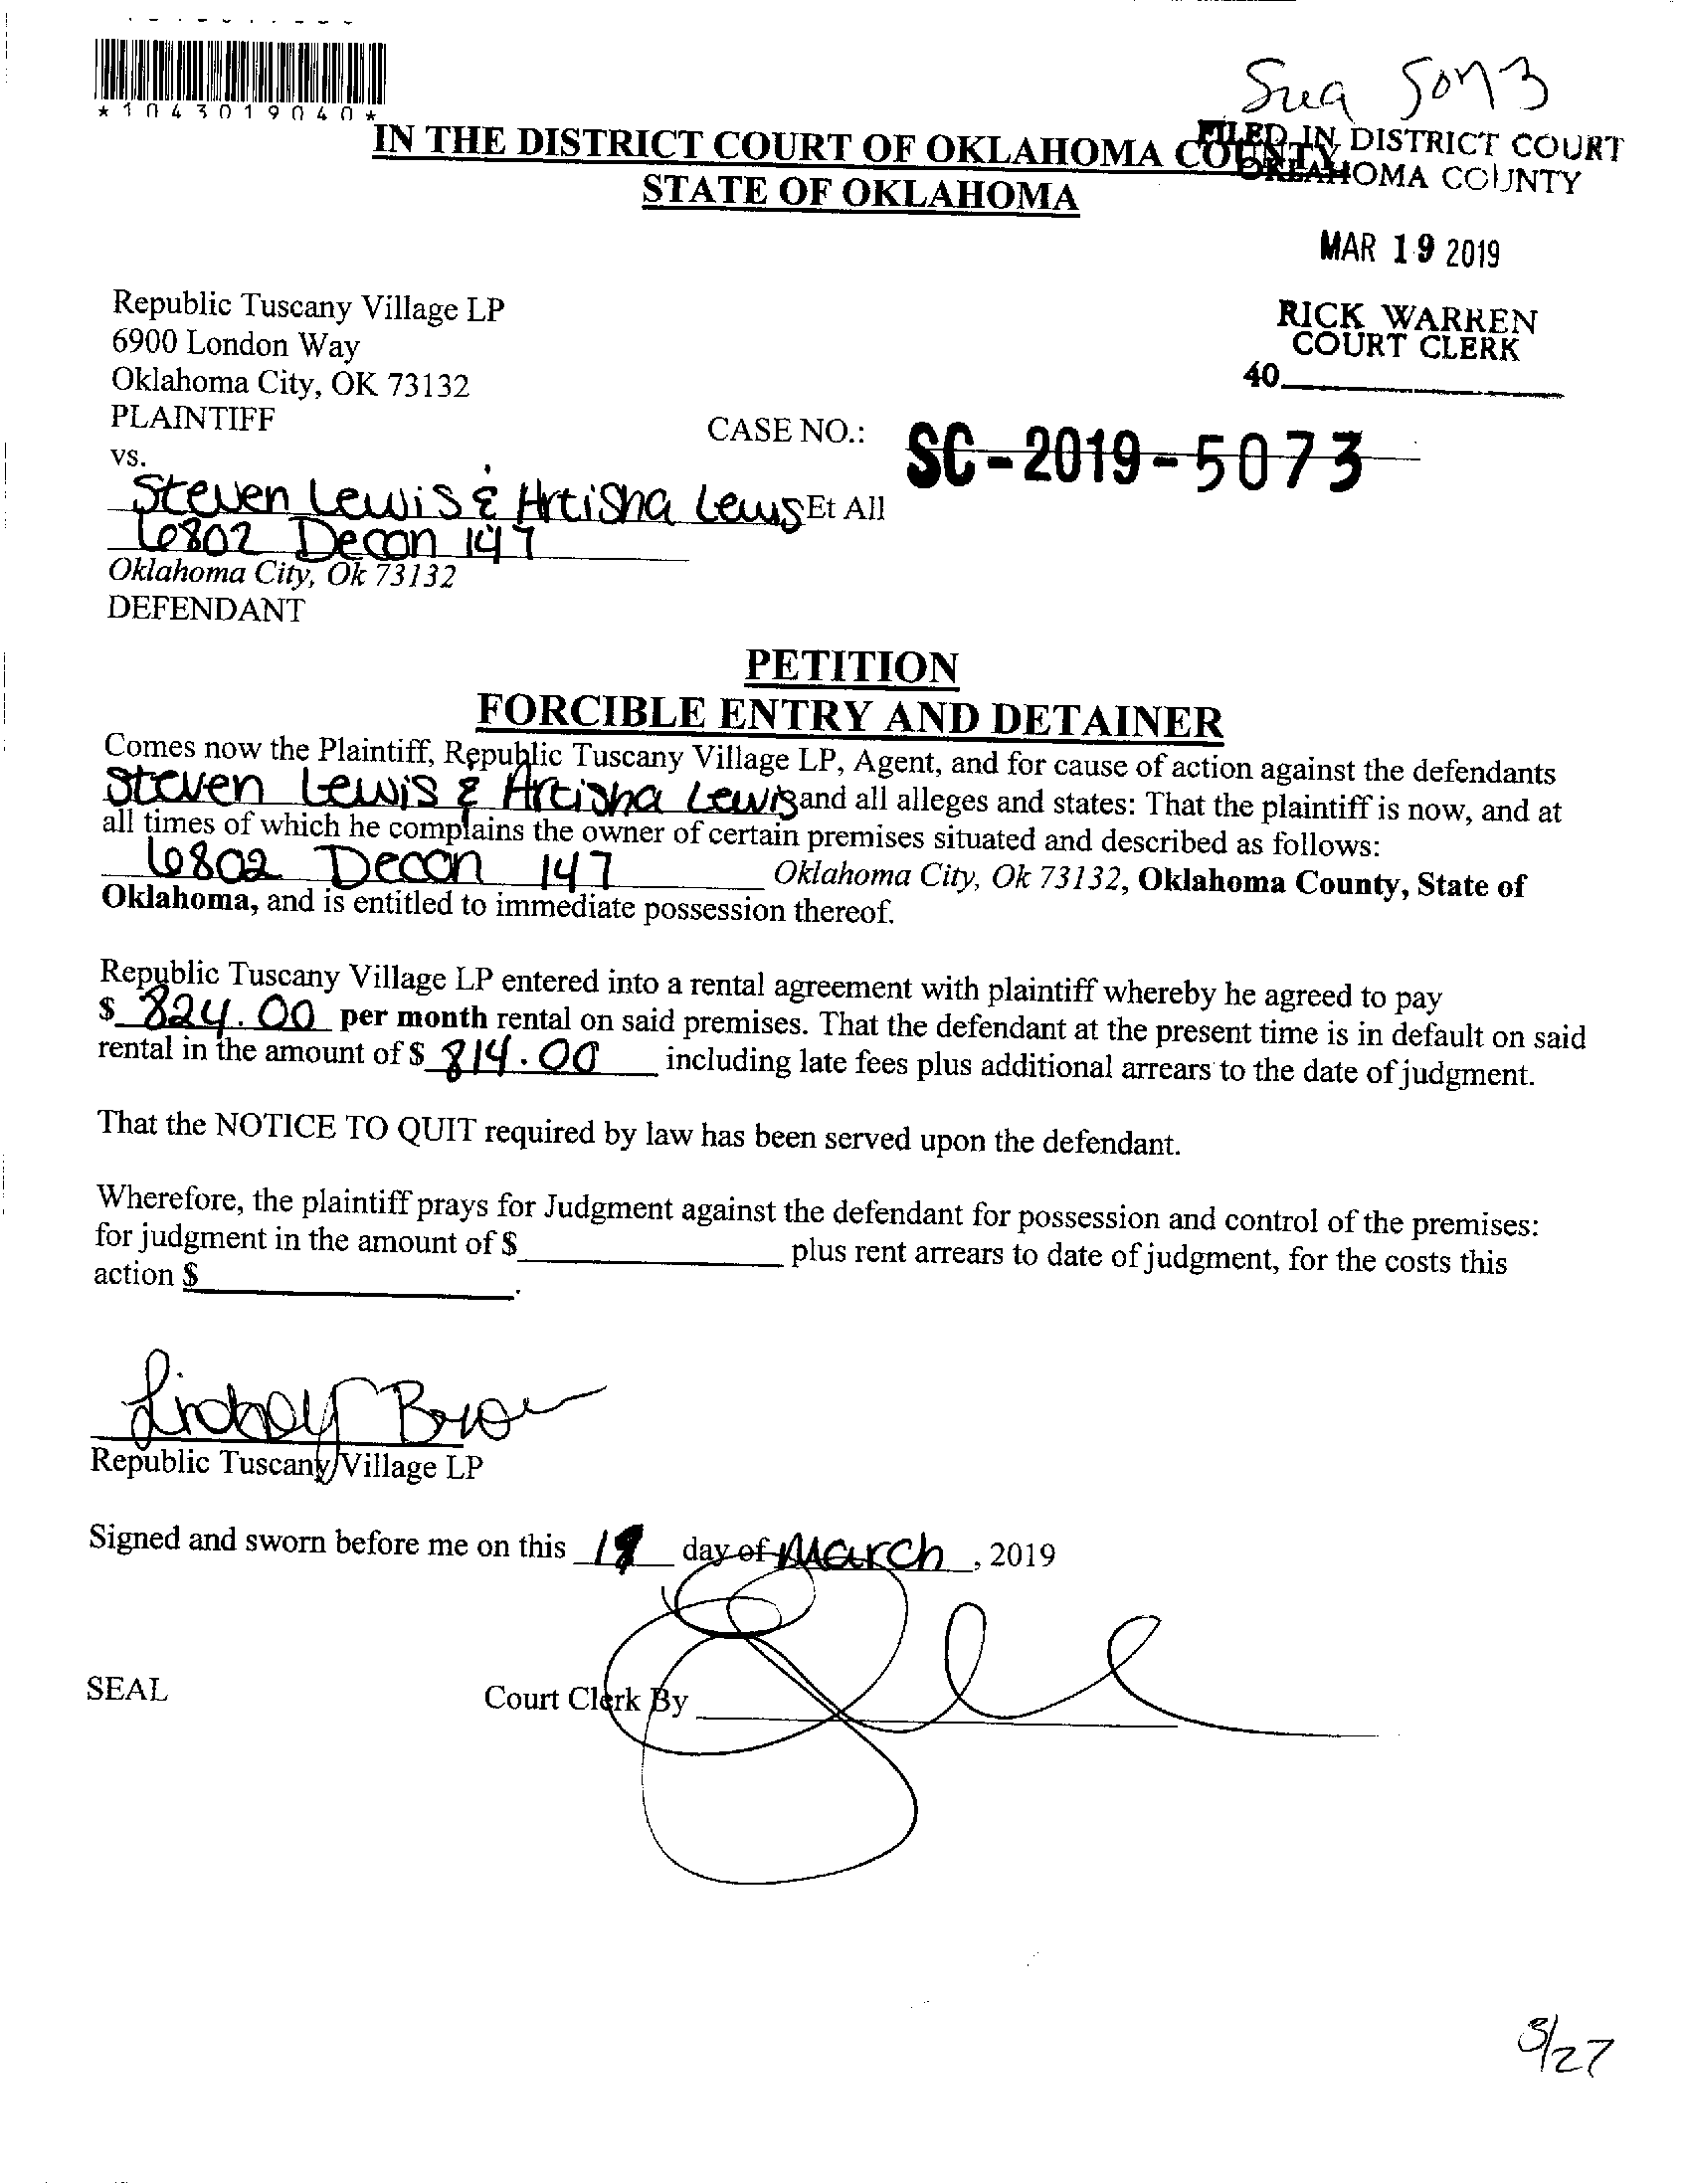 *1043019040*
5073
IN THE DISTRICT COURT OF OKLAHOMA COUNTY
FILED IN DISTRICT COURT
OKLAHOMA COUNTY
STATE OF OKLAHOMA
MAR 19 2019
RICK WARREN
COURT CLERK
40
Republic Tuscany Village LP
6900 London Way
Oklahoma City, OK 73132
PLAINTIFF
CASE NO.: SC-2019-5073
vs.
Steven Lewis & Artisha Lewis Et All
6802 Decon 147
Oklahoma City, Ok 73132
DEFENDANT
PETITION
FORCIBLE ENTRY AND DETAINER
Comes now the Plaintiff, Republic Tuscany Village LP, Agent, and for cause of action against the defendants
Steven Lewis & Artisha Lewis and all alleges and states: That the plaintiff is now, and at
all times of which he complains the owner of certain premises situated and described as follows:
6802 Decon 147 Oklahoma City, Ok 73132, Oklahoma County, State of
Oklahoma, and is entitled to immediate possession thereof.
Republic Tuscany Village LP entered into a rental agreement with plaintiff whereby he agreed to pay
$ 824.00 per month rental on said premises. That the defendant at the present time is in default on said
rental in the amount of $ 814.00 including late fees plus additional arrears to the date of judgment.
That the NOTICE TO QUIT required by law has been served upon the defendant.
Wherefore, the plaintiff prays for Judgment against the defendant for possession and control of the premises:
for judgment in the amount of $ plus rent arrears to date of judgment, for the costs this
action $ .
Lindsey Brow
Republic Tuscany Village LP
Signed and sworn before me on this day of March, 2019
SEAL
Court Clerk By
3/27